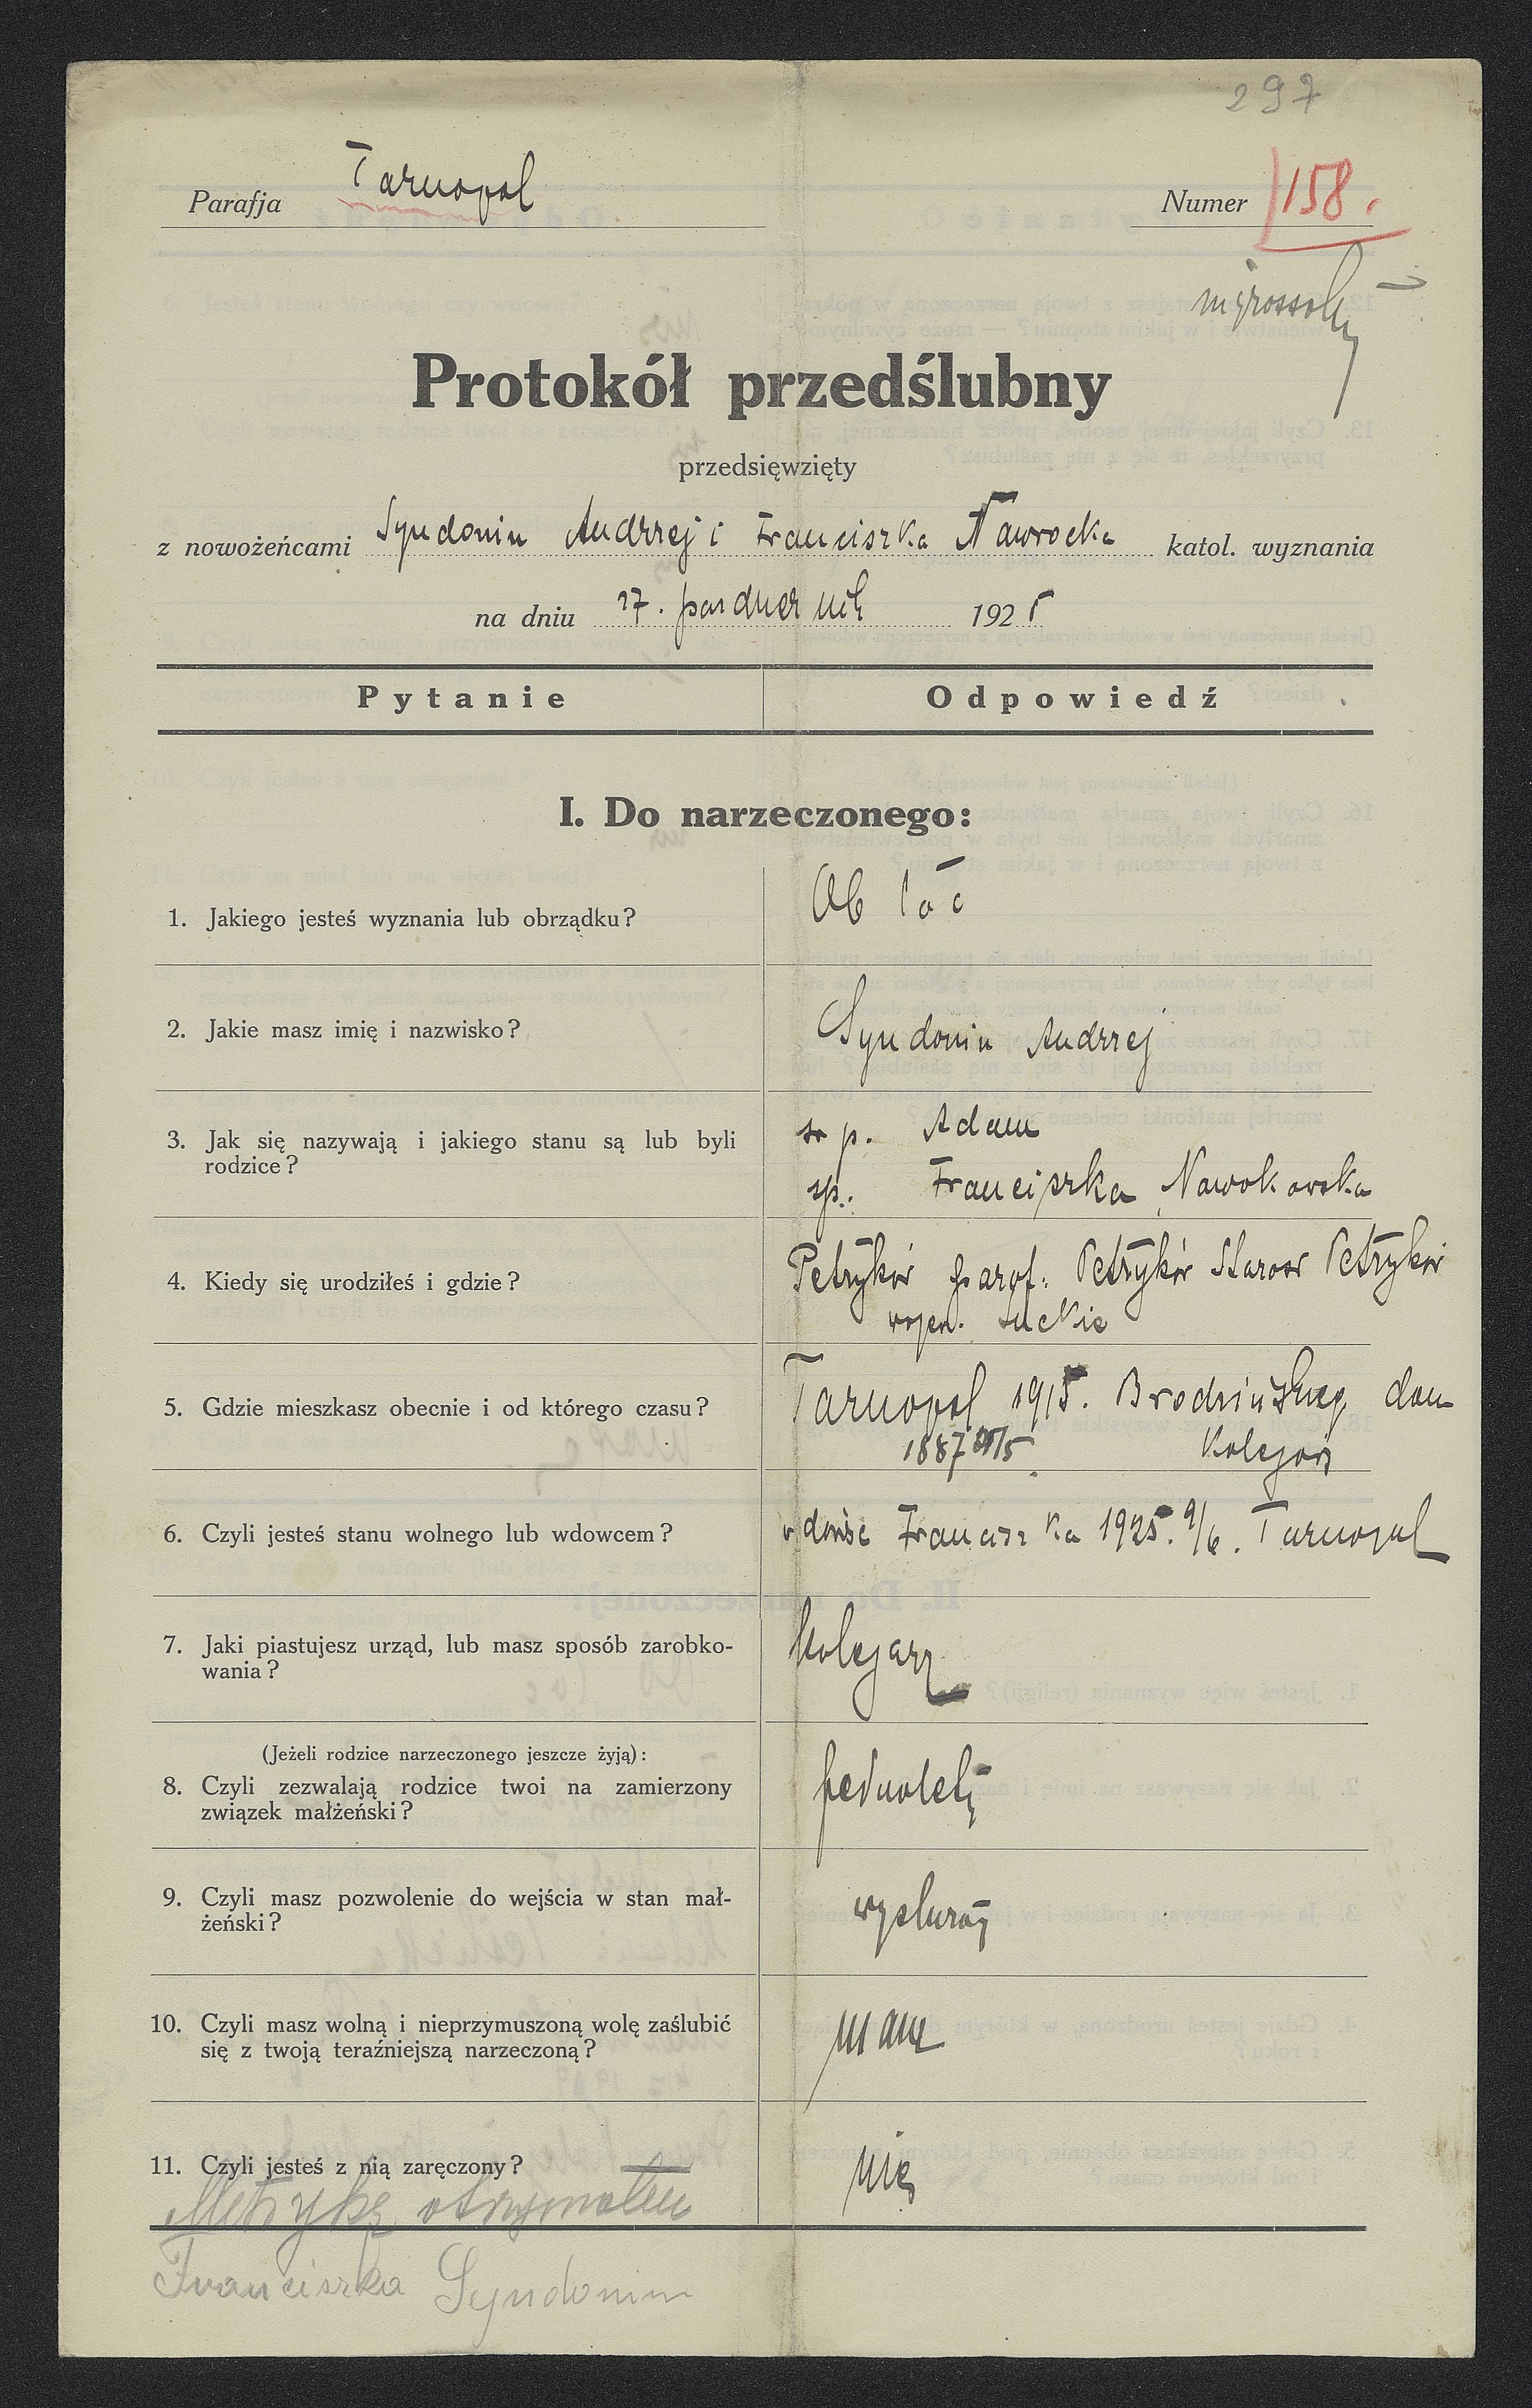 297
Parafja Tarnopol Numer 158.
Protokół przedślubny
przedsięwzięty
z nowożeńcami Syndonin Andrzej i Franciszka Nawrocka katol. wyznania
na dniu 27. październik 1925
Pytanie Odpowiedź
I. Do narzeczonego:
1. Jakiego jesteś wyznania lub obrządku? Ob łać
2. Jakie masz imię i nazwisko? Syndonin Andrzej
3. Jak się nazywają i jakiego stanu są lub byli śp. Adam
rodzice? śp. Franciszka Nawokowska
4. Kiedy się urodziłeś i gdzie? Petryków paraf. Petryków Staros Petryków
wojew. Łuckie
5. Gdzie mieszkasz obecnie i od którego czasu? Tarnopol 1915. Brodzińskieg dom
1887 Kolejowy
6. Czyli jesteś stanu wolnego lub wdowcem? Franciszka 1925. 9/6. Tarnopol
7. Jaki piastujesz urząd, lub masz sposób zarobko-
wania? Kolejarz
(Jeżeli rodzice narzeczonego jeszcze żyją):
8. Czyli zezwalają rodzice twoi na zamierzony
związek małżeński? pełnoletni
9. Czyli masz pozwolenie do wejścia w stan mał-
żeński? wysłużony
10. Czyli masz wolną i nieprzymuszoną wolę zaślubić
się z twoją teraźniejszą narzeczoną? mam
11. Czyli jesteś z nią zaręczony? nie
Metrykę otrzymałem
Franciszka Syndonin